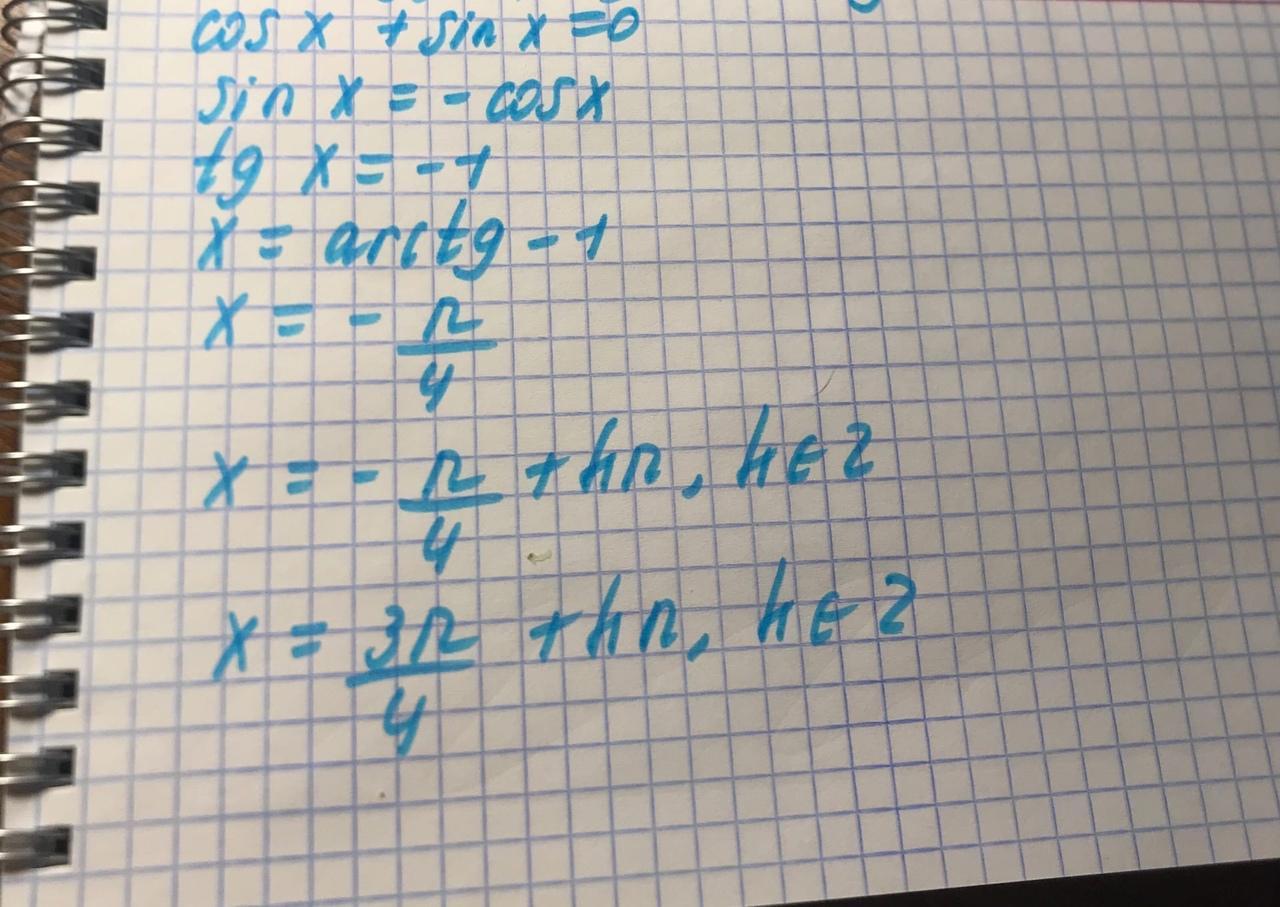 cos x + sin x = 0
sin x = - cos x
tg x = -1
x = arctg -1
x = - π/4
x = - π/4 + hπ, h ∈ Z
x = 3π/4 + hπ, h ∈ Z